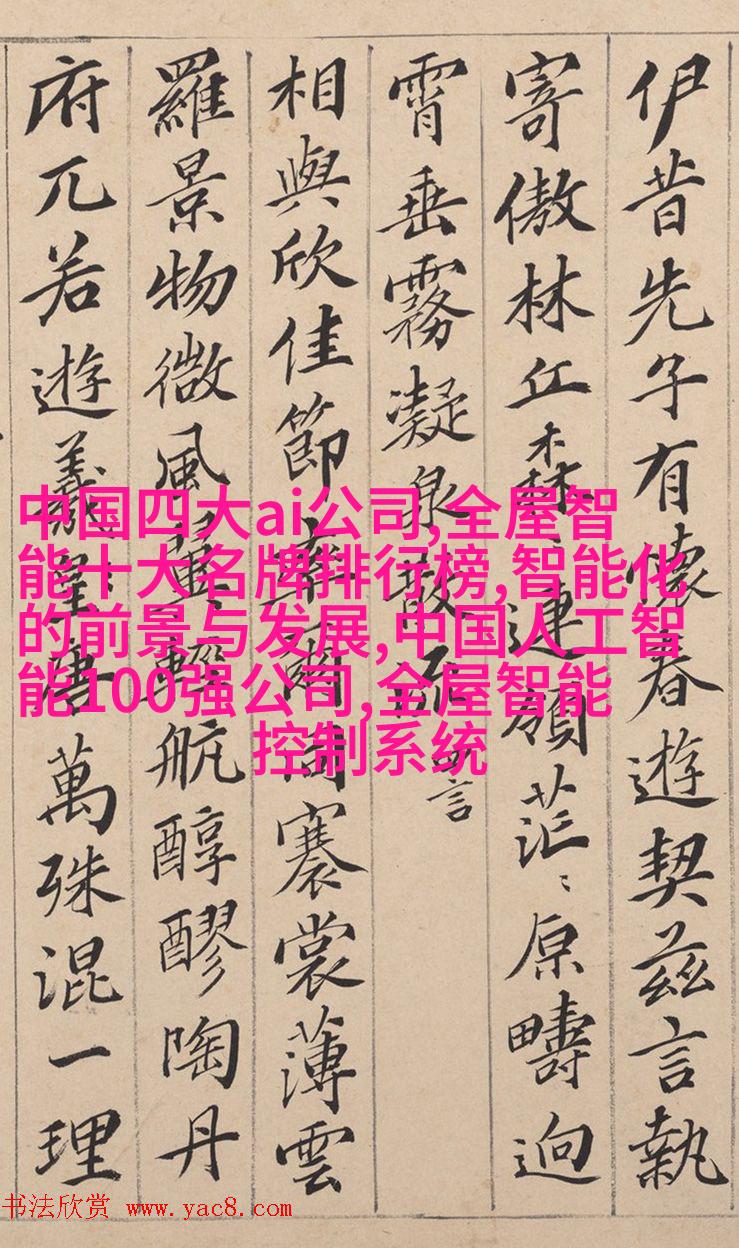 伊昔先子有懷春遊契茲言執
寄傲林丘森〻連嶺茫〻原疇迥
霄垂霧凝泉散流 言
相與欣佳節率爾同褰裳薄雲
羅景物微風翼輕航醇醪陶丹
府兀若遊羲皇唐萬殊混一理
中国四大ai公司,全屋智
能十大名牌排行榜,智能化
的前景与发展,中国人工智
能100强公司,全屋智能
控制系统
书法欣赏 www.yac8.com